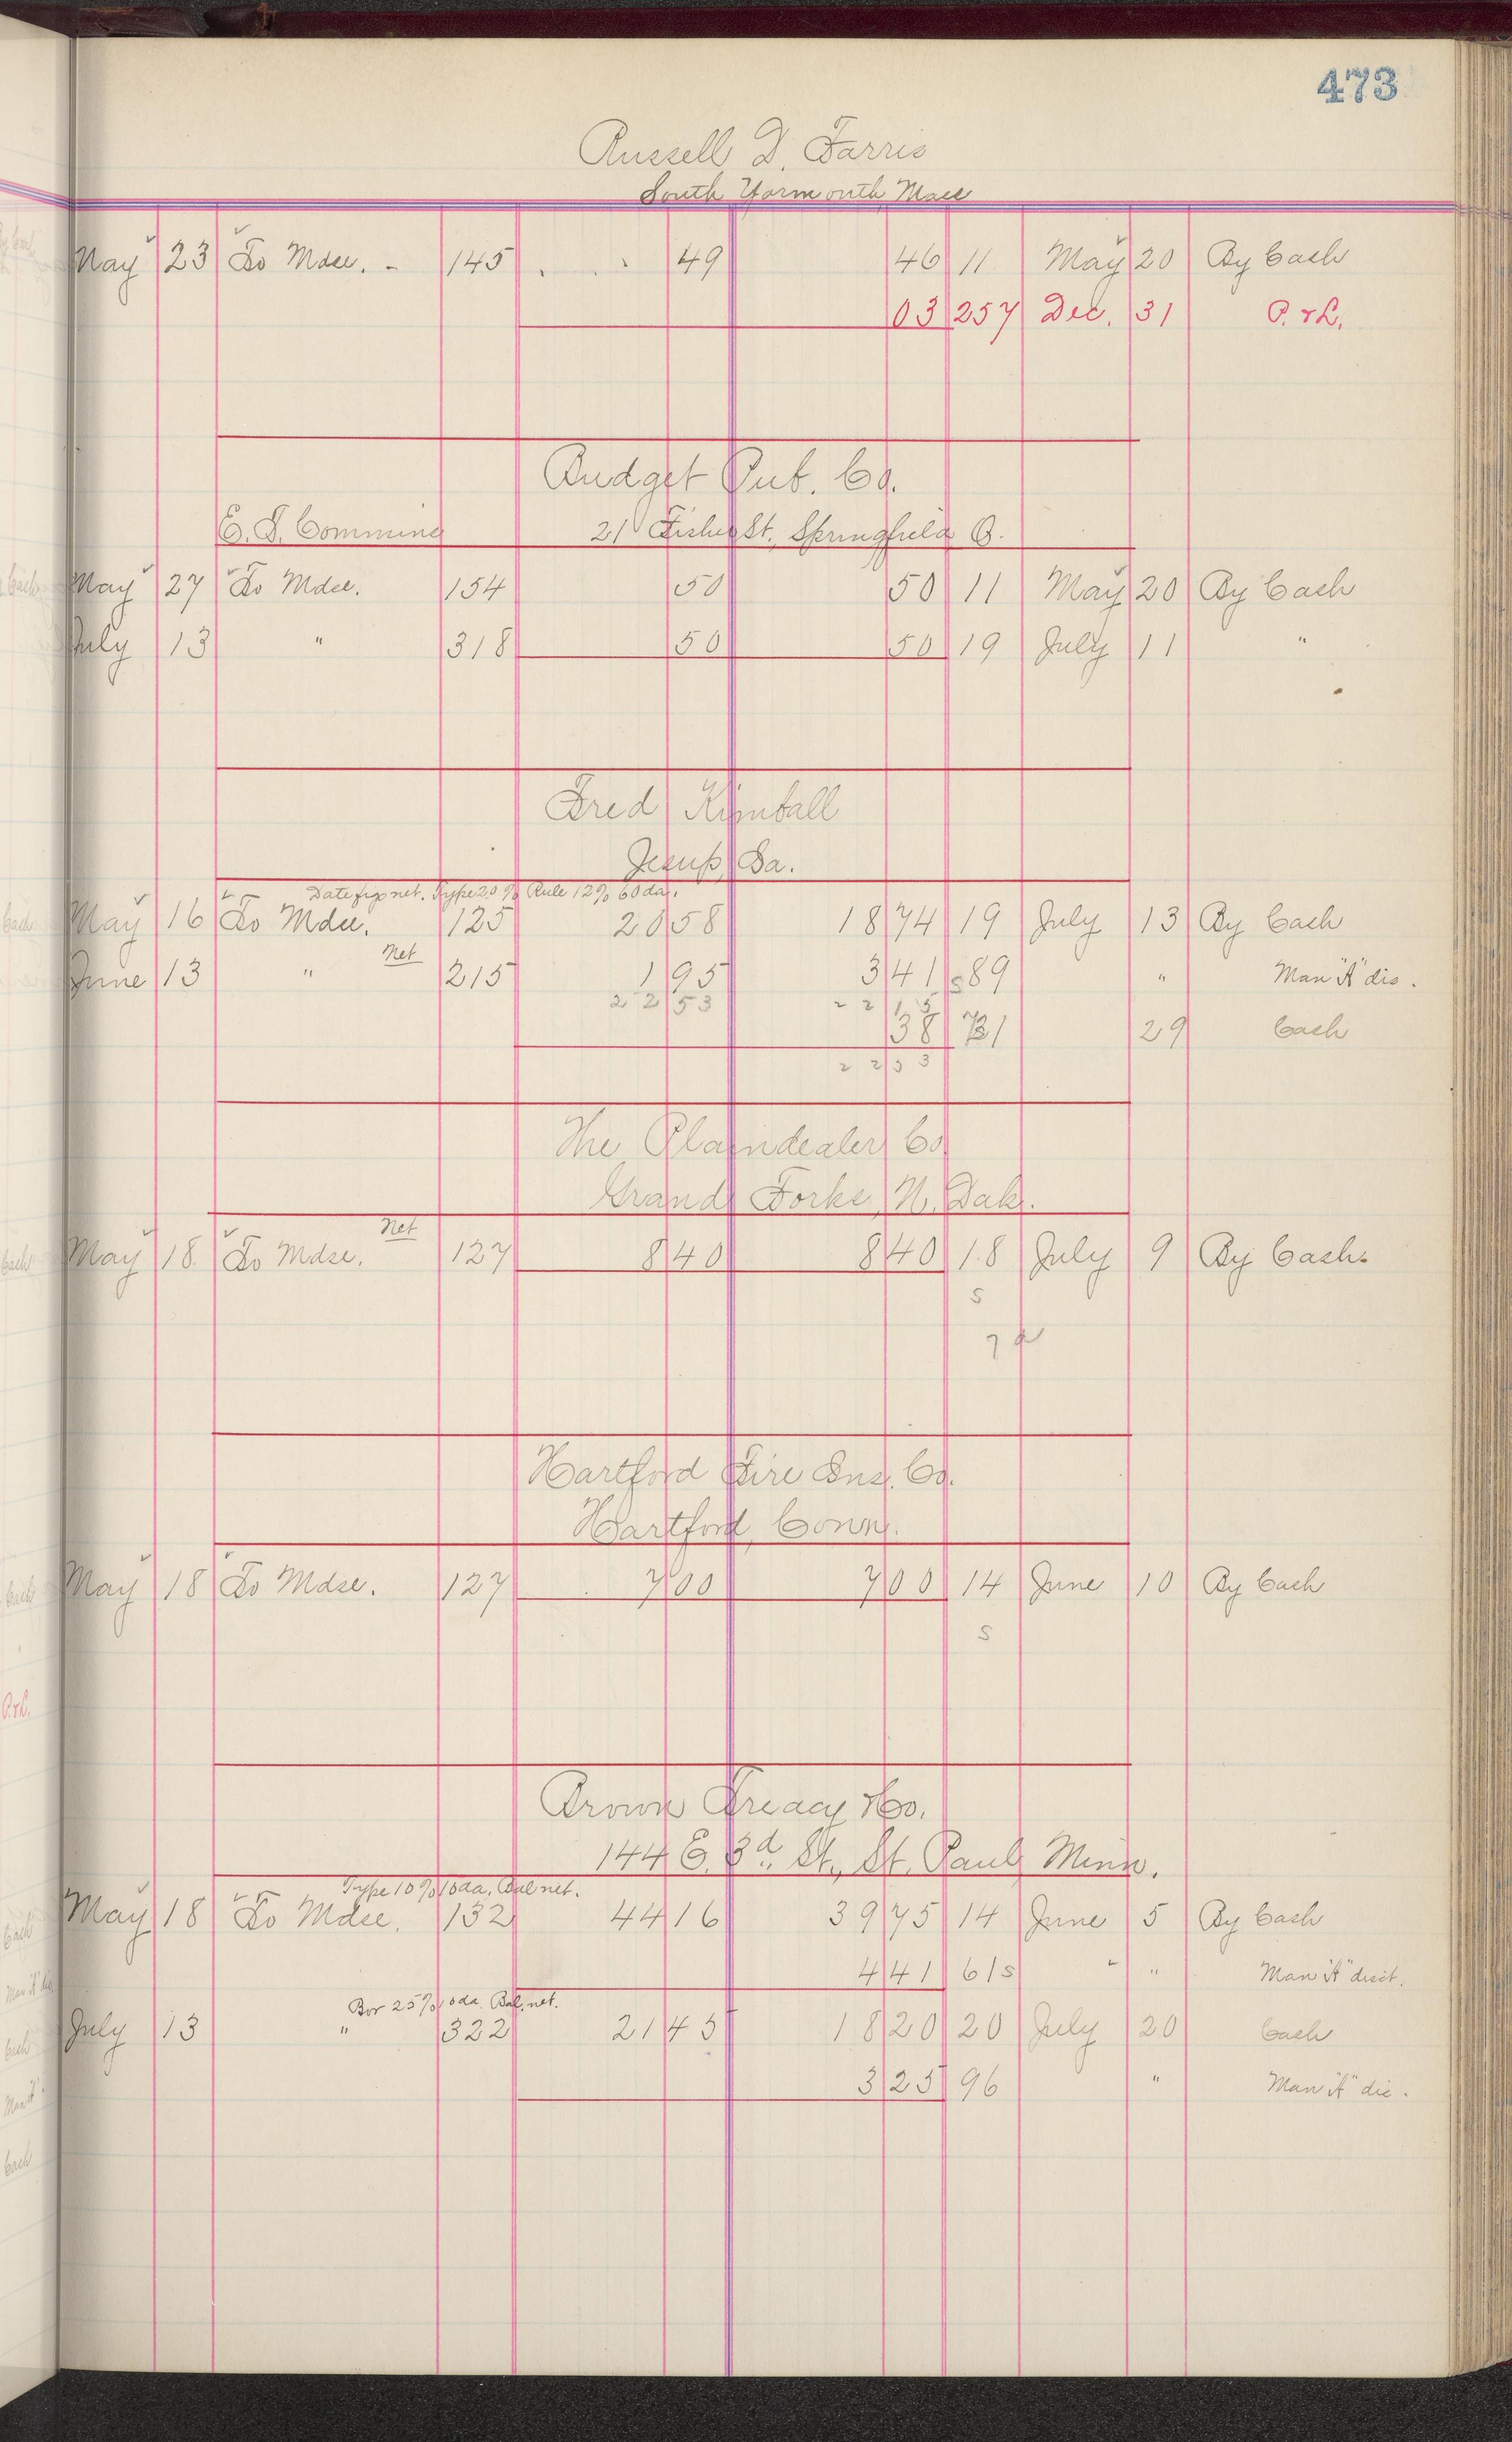 473
Russell D. Farris
South Yarmouth Mass
May 23 To Mdse. - 145 49 46 11 May 20 By Cash
03 257 Dec. 31 P. & L.
Budget Pub. Co.
E. T. Commins 21 Fisher St., Springfield O.
May 27 To Mdse. 154 50 50 11 May 20 By Cash
July 13 " 318 50 50 19 July 11 "
Fred Kimball
Jesup, Ga.
Date figs net. Type 20% Rule 12% 60 da.
May 16 To Mdse. 125 20 58 18 74 19 July 13 By Cash
Net
June 13 " 215 1 95 3 41 s89 " Man "A" dis.
22 53 22 15
38 21 29 Cash
22 53
The Plaindealer Co
Grand Forks, N. Dak.
Net
May 18 To Mdse. 127 8 40 8 40 18 July 9 By Cash.
s
Hartford Fire Ins. Co.
Hartford, Conn.
May 18 To Mdse. 127 7 00 7 00 14 June 10 By Cash
s
Brown Treacy & Co.
144 E. 3d. St., St. Paul, Minn.
Type 10% 10 da. Bal net.
May 18 To Mdse. 132 44 16 39 75 14 June 5 By Cash
4 41 61s " " Man "A" disct.
Bor 25% 10 da. Bal. net.
July 13 " 322 21 45 18 20 20 July 20 Cash
3 25 96 " Man "A" dis.